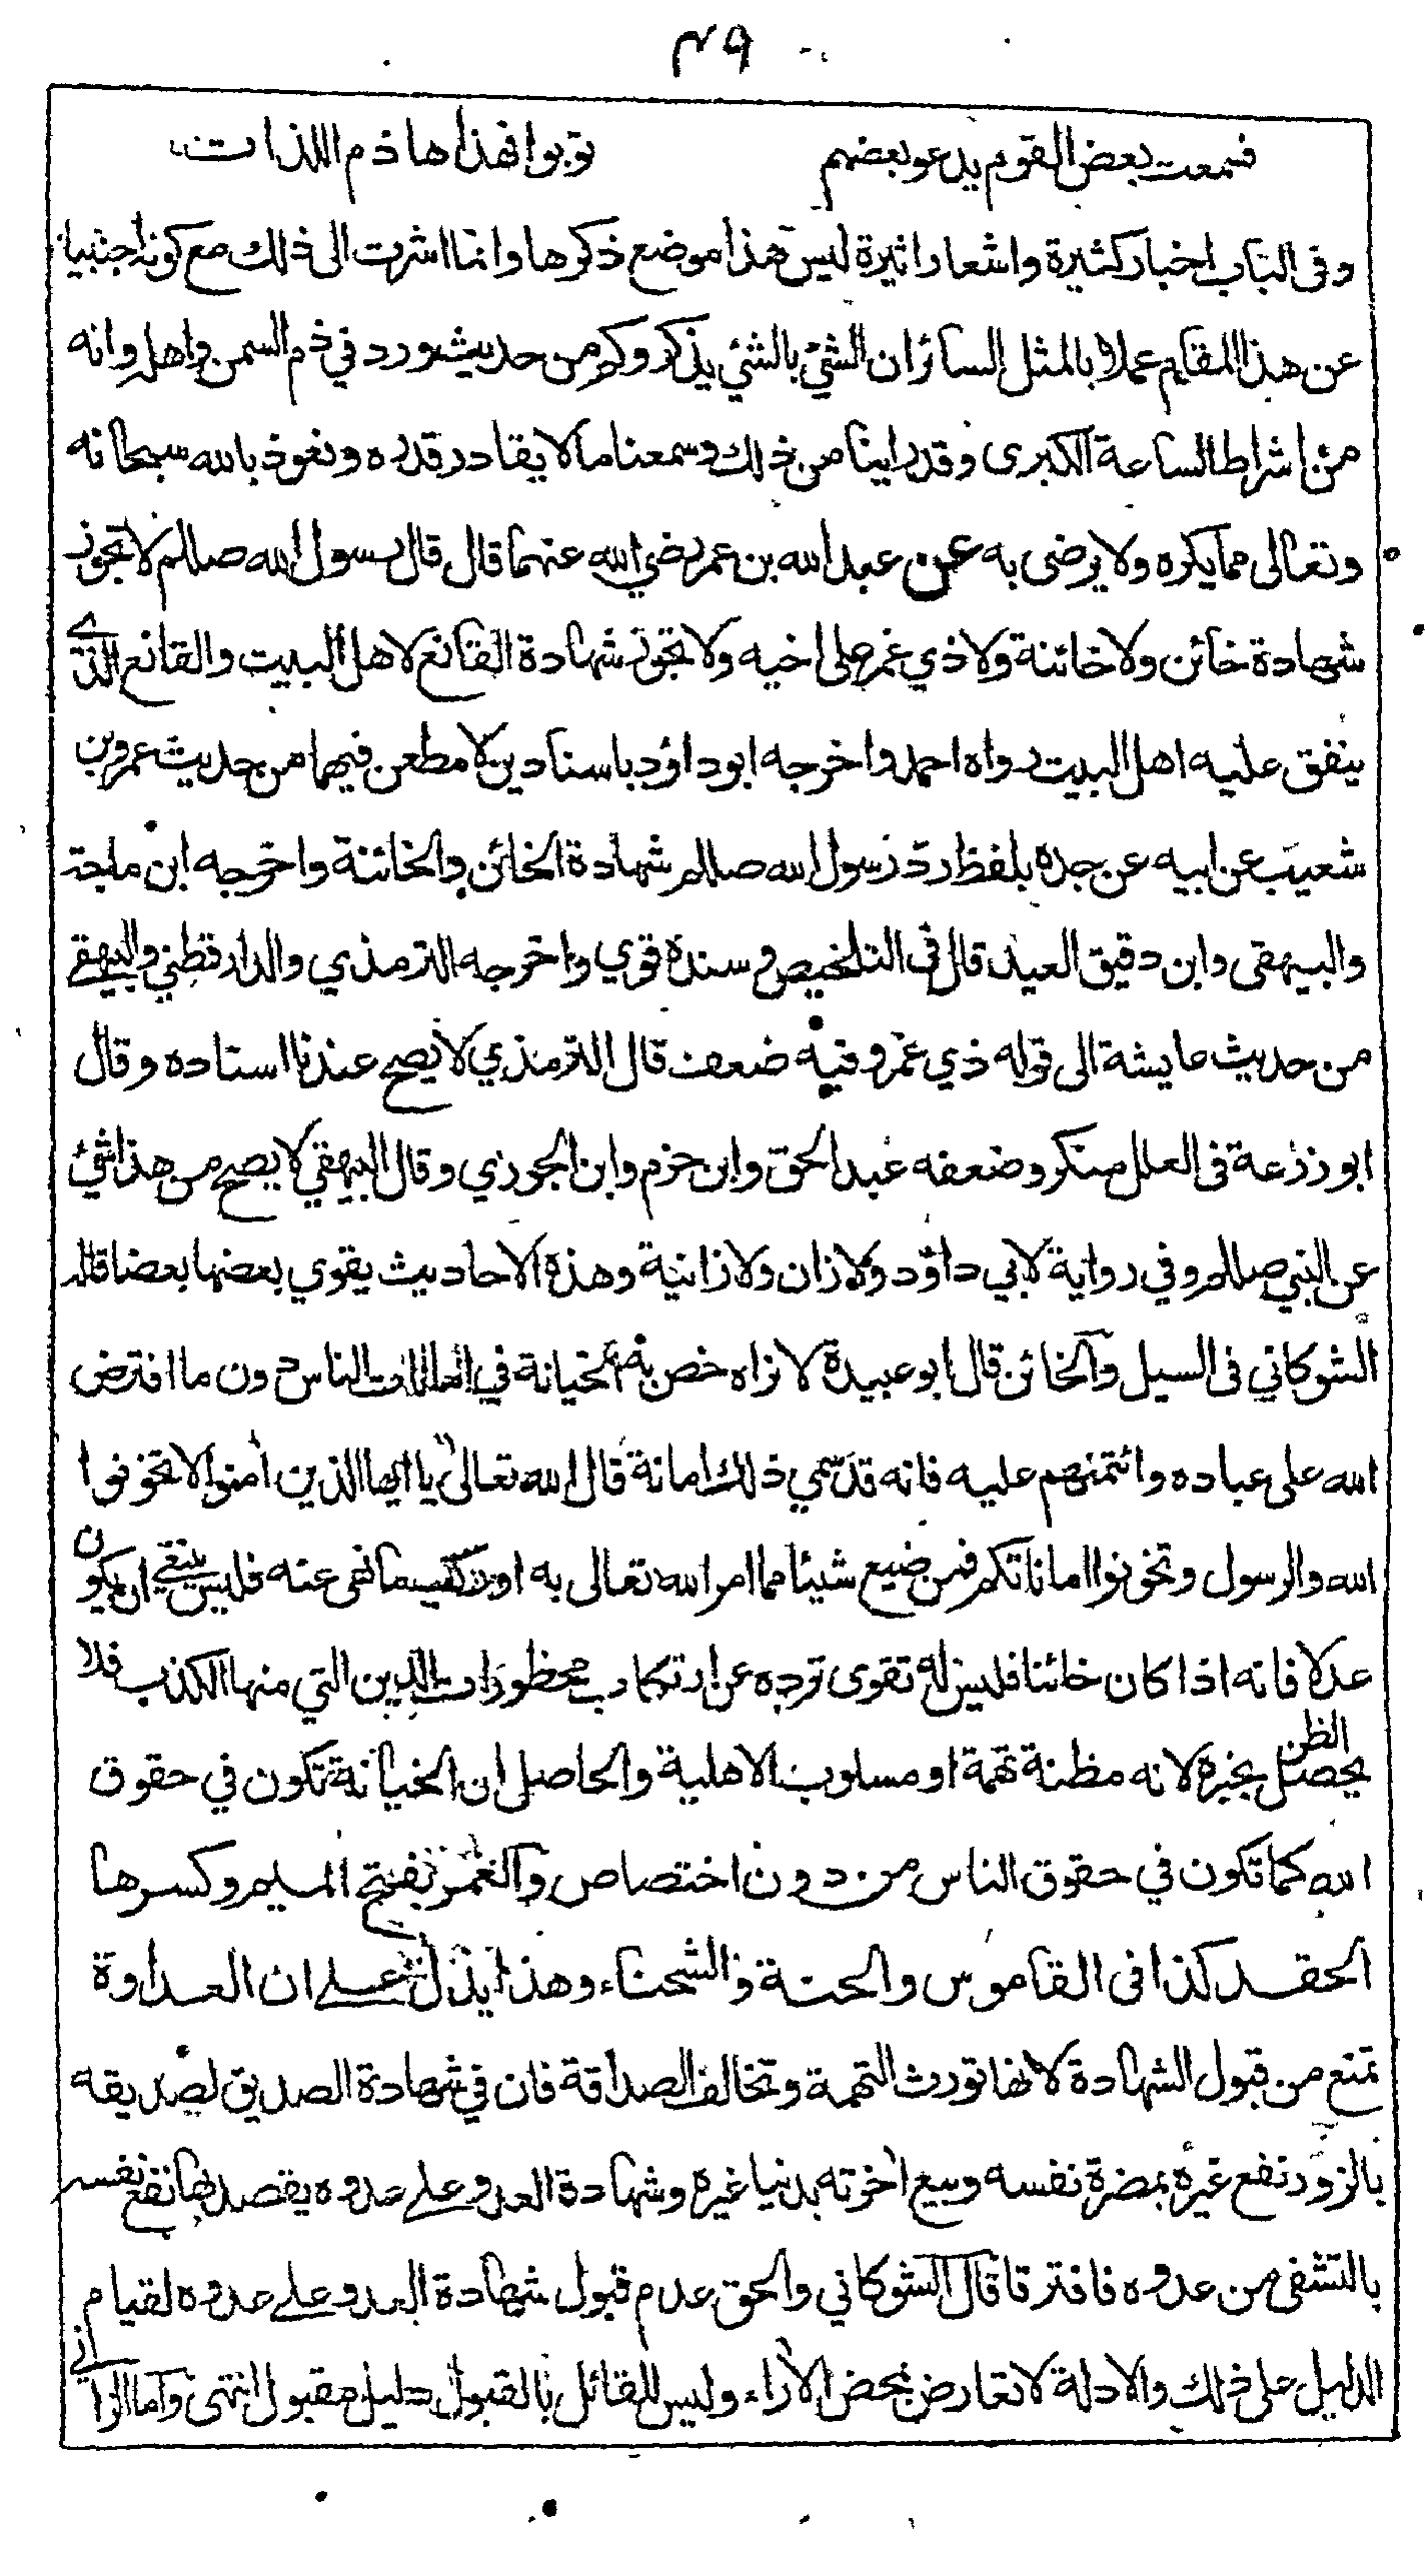 ٤٩
فسمعت بعض القوم يدعو بعضهم توبوا فهذا هاذم اللذات
وفي الباب اخبار كثيرة واشعار اثيرة ليس هذا موضع ذكرها وانما اشرت الى ذلك مع كونه اجنبيا
عن هذا المقام عملا بالمثل السائر ان الشئ بالشئ يذكر وكم من حديث ورد في ذم السمن واهله وانه
من اشراط الساعة الكبرى وقد راينا من ذلك وسمعنا ما لا يقادر قدره ونعوذ بالله سبحانه
وتعالى مما يكره ولا يرضى به عن عبد الله بن عمر رضي الله عنهما قال قال رسول الله صللم لا تجوز
شهادة خائن ولا خائنة ولا ذي غمر على اخيه ولا تجوز شهادة القانع لاهل البيت والقانع الذي
ينفق عليه اهل البيت رواه احمد واخرجه ابو داؤد باسنادين لا مطعن فيهما من حديث عمرو بن
شعيب عن ابيه عن جده بلفظ رد رسول الله صللم شهادة الخائن والخائنة واخرجه ابن ماجة
والبيهقي وابن دقيق العيد قال في التلخيص وسنده قوي واخرجه الترمذي والدارقطني والبيهقي
من حديث عايشة الى قوله ذي غمر وفيه ضعف قال الترمذي لا يصح عندنا اسناده وقال
ابو زرعة في العلل منكر وضعفه عبد الحق وابن حزم وابن الجوزي وقال البيهقي لا يصح من هذا شئ
عن النبي صللم وفي رواية لابي داؤد ولا زان ولا زانية وهذه الاحاديث يقوي بعضها بعضا قاله
الشوكاني في السيل والخائن قال ابو عبيدة لا نراه خص به الخيانة في امانات الناس دون ما افترض
الله على عباده وائتمنهم عليه فانه قد سمي ذلك امانة قال الله تعالى يا ايها الذين امنوا لا تخونوا
الله والرسول وتخونوا اماناتكم فمن ضيع شيئا مما امر الله تعالى به او ركب ما نهى عنه فليس ينبغي ان يكون
عدلا فانه اذا كان خائنا فليس له تقوى ترده عن ارتكاب محظورات الدين التي منها الكذب فلا
يحصل الظن بخبره لانه مظنة تهمة او مسلوب الاهلية والحاصل ان الخيانة تكون في حقوق
الله كما تكون في حقوق الناس من دون اختصاص والغمر بفتح الميم وكسرها
الحقد كذا في القاموس والحنة والشحناء وهذا يدل على ان العداوة
تمنع من قبول الشهادة لانها تورث التهمة وتخالف الصداقة فان في شهادة الصديق لصديقه
بالزور نفع غيره بمضرة نفسه وبيع اخرته بدنيا غيره وشهادة العدو على عدوه يقصد بها نفع نفسه
بالتشفي من عدوه فافترقا قال الشوكاني والحق عدم قبول شهادة العدو على عدوه لقيام
الدليل على ذلك والادلة لا تعارض بمحض الاراء وليس للقائل بالقبول دليل مقبول انتهى واما الزاني